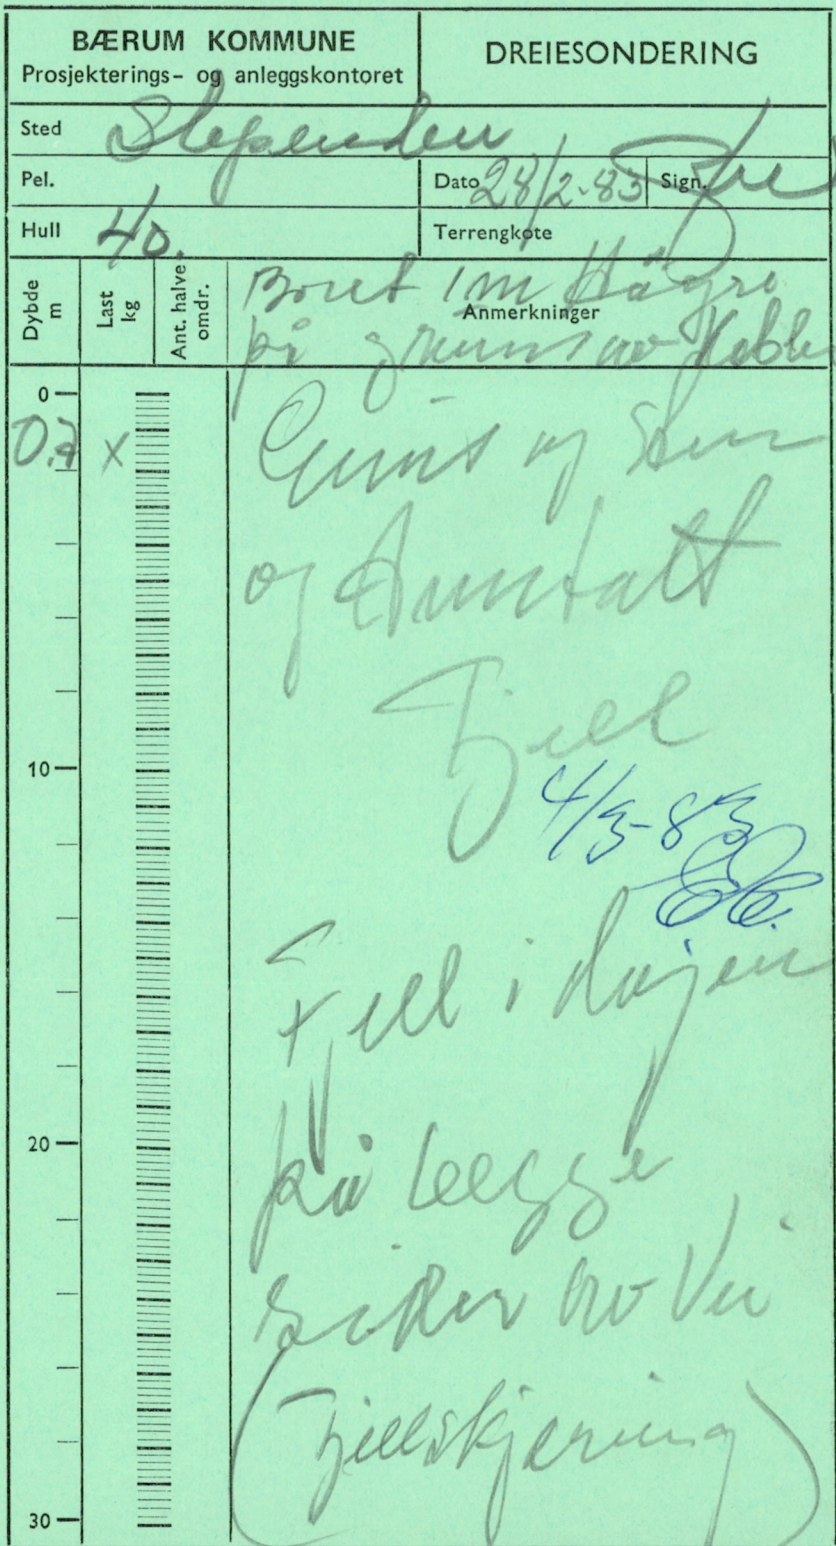 BÆRUM KOMMUNE
Prosjekterings- og anleggskontoret
DREIESONDERING
Sted Slependen
Pel.
Dato 28/2-83 Sign.
Hull 40.
Terrengkote
Dybde m
Last kg
Ant. halve omdr.
Anmerkninger
Boret 1m Høgre
på grunn av Kabler
0
0.7 x
Grus og Sten
og Antatt
Fjell
10
4/3-83
Fjell i dagen
20
på begge
sider av Vei
(Fjellskjæring)
30